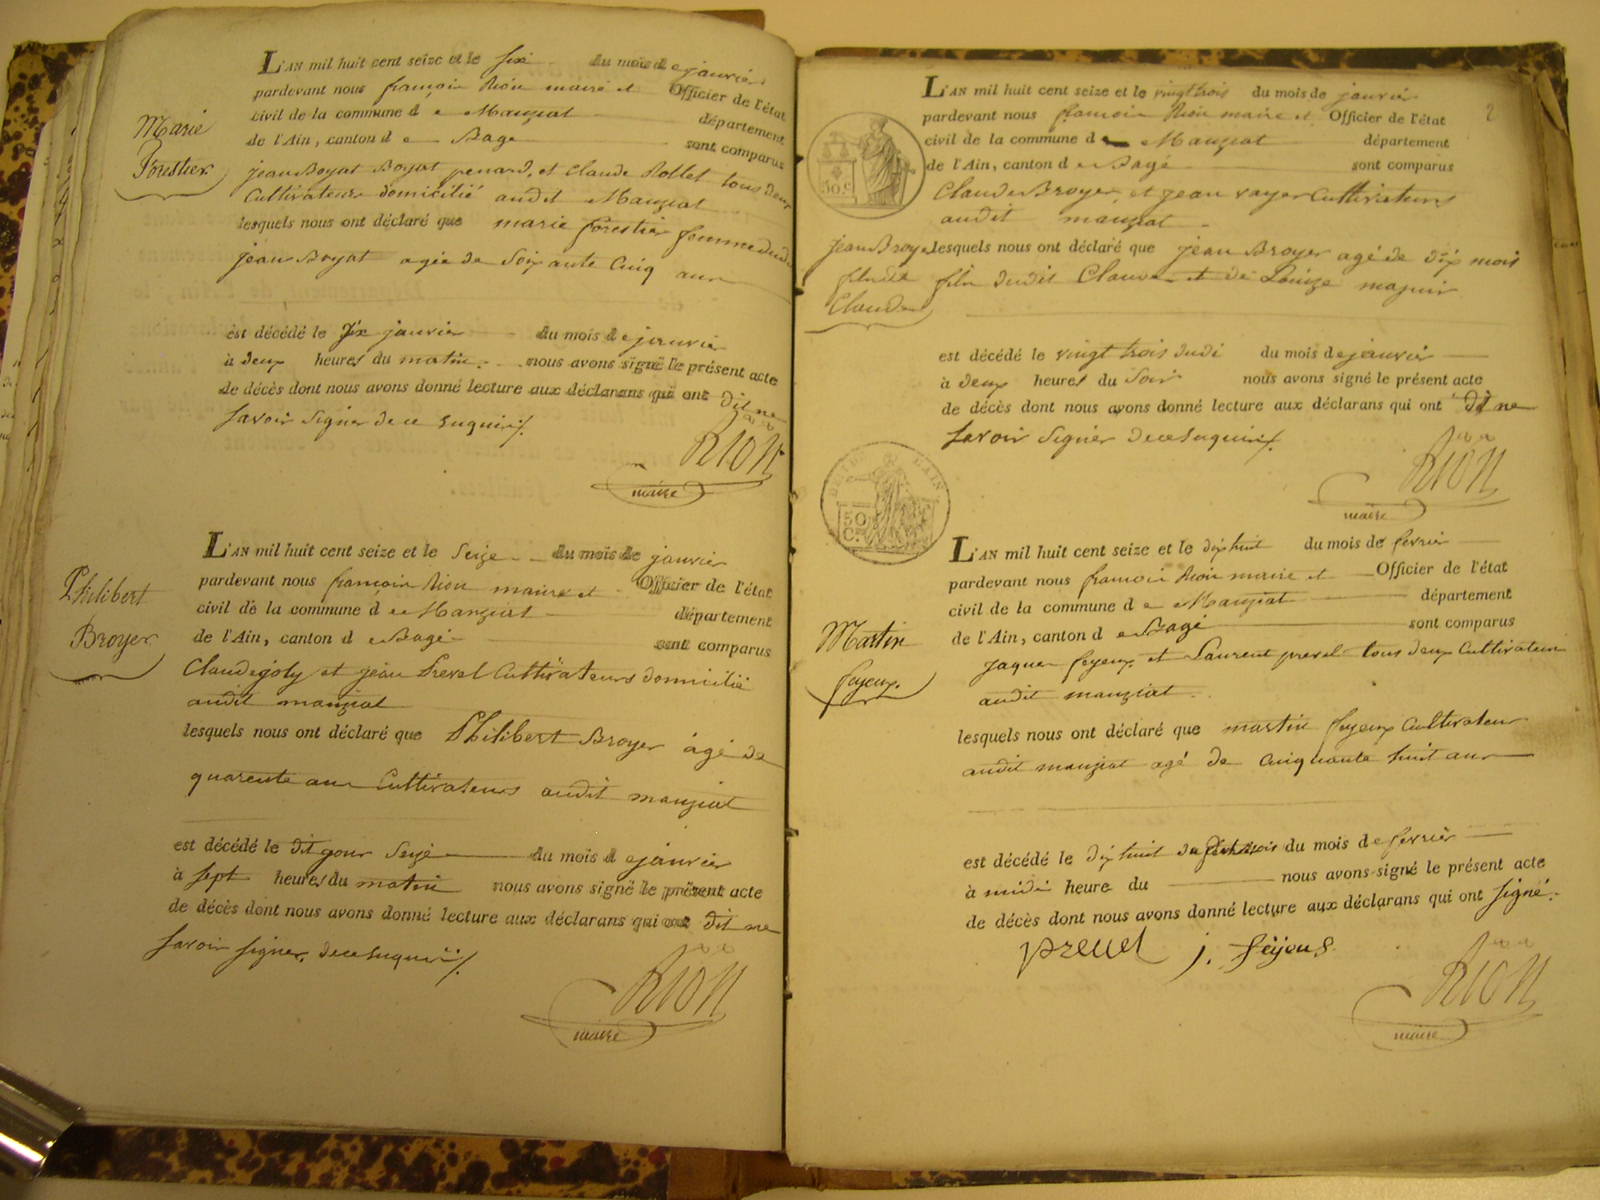 Marie
Forestier
L'AN mil huit cent seize et le six du mois de janvier
pardevant nous françois Rion maire et Officier de l'état
civil de la commune de Manziat département
de l'Ain, canton de Bagé sont comparus
jean Boyat Boyat penard, et Claude Rollet tous deux
Cultivateurs domicilié audit Manziat
lesquels nous ont déclaré que marie forestier femme dudi
jean Boyat agée de Soixante Cinq ans
est décédé le six janvier du mois de janvier
à deux heures du matin. nous avons signé le présent acte
de décès dont nous avons donné lecture aux déclarans qui ont dit ne
savoir signer de ce enquis
Rion
maire
Philibert
Broyer
L'AN mil huit cent seize et le Seize du mois de janvier
pardevant nous françois Rion maire et Officier de l'état
civil de la commune de Manziat département
de l'Ain, canton de Bagé sont comparus
Claude joly et jean Prevel Cultivateurs domicilié
audit manziat
lesquels nous ont déclaré que Philibert Broyer âgé de
quarente ans Cultivateurs audit manziat
est décédé le dit jour Seize du mois de janvier
à sept heures du matin nous avons signé le présent acte
de décès dont nous avons donné lecture aux déclarans qui ont dit ne
savoir signer, de ce enquis
Rion
maire
2
50 c
L'AN mil huit cent seize et le vingt trois du mois de janvier
pardevant nous francois Rion maire et Officier de l'état
civil de la commune de Manziat département
de l'Ain, canton de Bagé sont comparus
Claude Broyer, et jean Cultivateurs
audit manziat
jean Broyer
fils de
Claude
lesquels nous ont déclaré que jean Broyer agé de dix mois
fils dudit Claude et de Louize
est décédé le vingt trois dudi du mois de janvier
à deux heures du Soir nous avons signé le présent acte
de décès dont nous avons donné lecture aux déclarans qui ont dit ne
savoir signer de ce enquis
Rion
maire
50
C.
L'AN mil huit cent seize et le dix huit du mois de fevrier
pardevant nous francois Rion maire et Officier de l'état
civil de la commune de Manziat département
de l'Ain, canton de Bagé sont comparus
Martin
feyeux
jaques feyeux et Laurent prevel tous deux Cultivateurs
audit manziat
lesquels nous ont déclaré que martin feyeux Cultivateur
audit manziat agé de Cinquante huit ans
est décédé le dix huit du mois de fevrier
à midi heure du nous avons signé le présent acte
de décès dont nous avons donné lecture aux déclarans qui ont signé.
prevel j. feyeux
Rion
maire